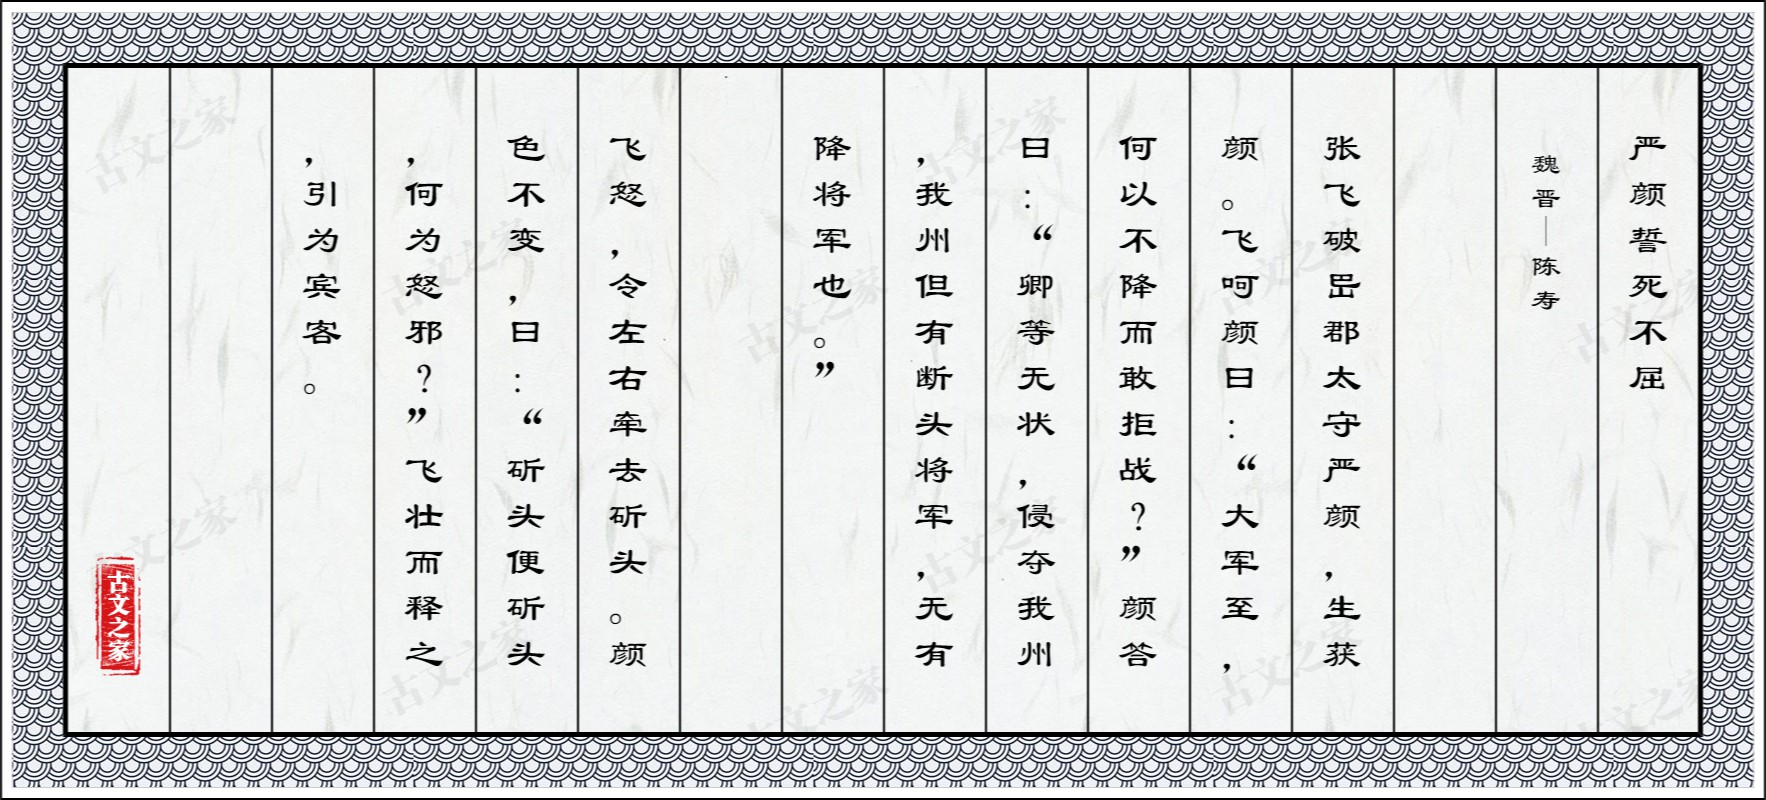 严颜誓死不屈
魏晋—陈寿
张飞破邑郡太守严颜，生获
颜。飞呵颜曰：“大军至，
何以不降而敢拒战？”颜答
曰：“卿等无状，侵夺我州
，我州但有断头将军，无有
降将军也。”
飞怒，令左右牵去斫头。颜
色不变，曰：“斫头便斫头
，何为怒邪？”飞壮而释之
，引为宾客。
古文之家